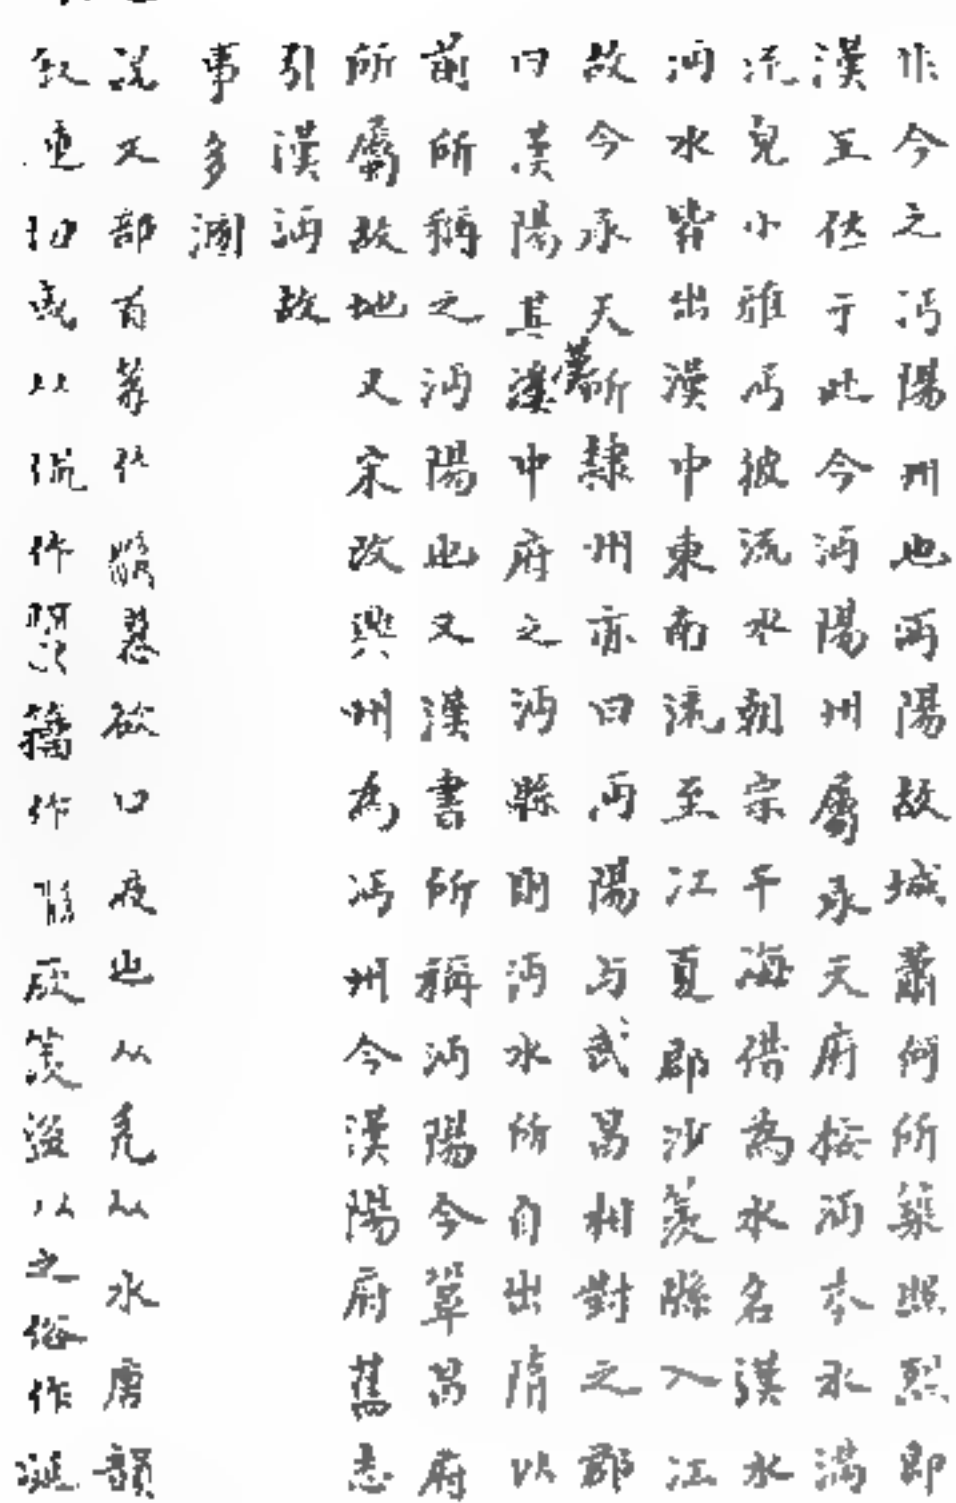 非今之沔陽州也沔陽故城蕭何所築照烈即
漢王位于此今沔陽州屬承天府按沔本水滿
流皃小雅沔彼流水朝宗于海借為水名漢水
沔水皆出漢中東南流至江夏郡沙羨縣入江
故今承天所隸州亦曰沔陽与武昌相對之郡
曰漢陽其漢中府之沔縣則沔水所自出隋以
前所稱之沔陽也又漢書所稱沔陽今鞏昌府
所屬故地又宋改興州為沔州今漢陽府舊志
引漢沔故
事多溷
說文部首 㳄欲口液也从欠从水唐韻
叙連切或以侃作 籀作 㳄羨盜以之俗作涎